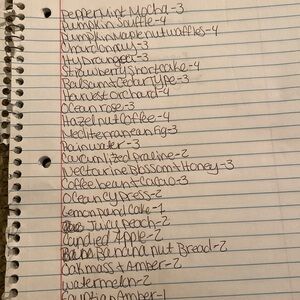 Peppermint Mocha-3
Pumpkin Souffle-4
Pumpkin Maplenutwaffles-4
Chardonnay-3
Hydrangea-3
Strawberry Shortcake-4
Balsam+Cedar Type-3
Harvest Orchard-4
Ocean rose-3
Hazelnut Coffee-4
Mediterranean fig-3
Rainwater-3
Caramelized praline-2
Nectarine Blossom+Honey-3
Coffee bean+Cacao-3
Ocean Cypress-2
Lemon Pound cake-1
Juicy peach-2
Candied Apple-2
Banana nut Bread-2
Oakmoss+Amber-2
watermelon-2
Egyptian Amber-1